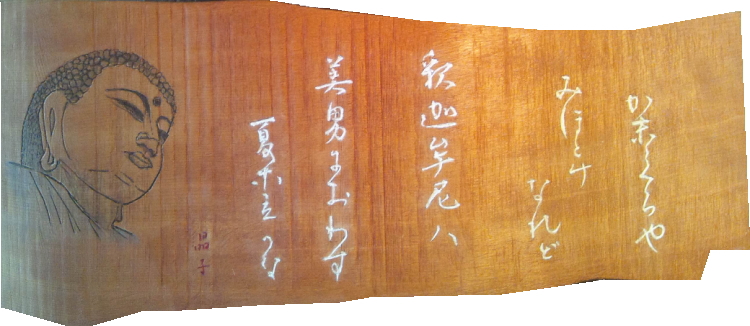 かまくらや
みほとけ
なれど
釈迦牟尼ハ
美男におわす
夏木立かな
晶子